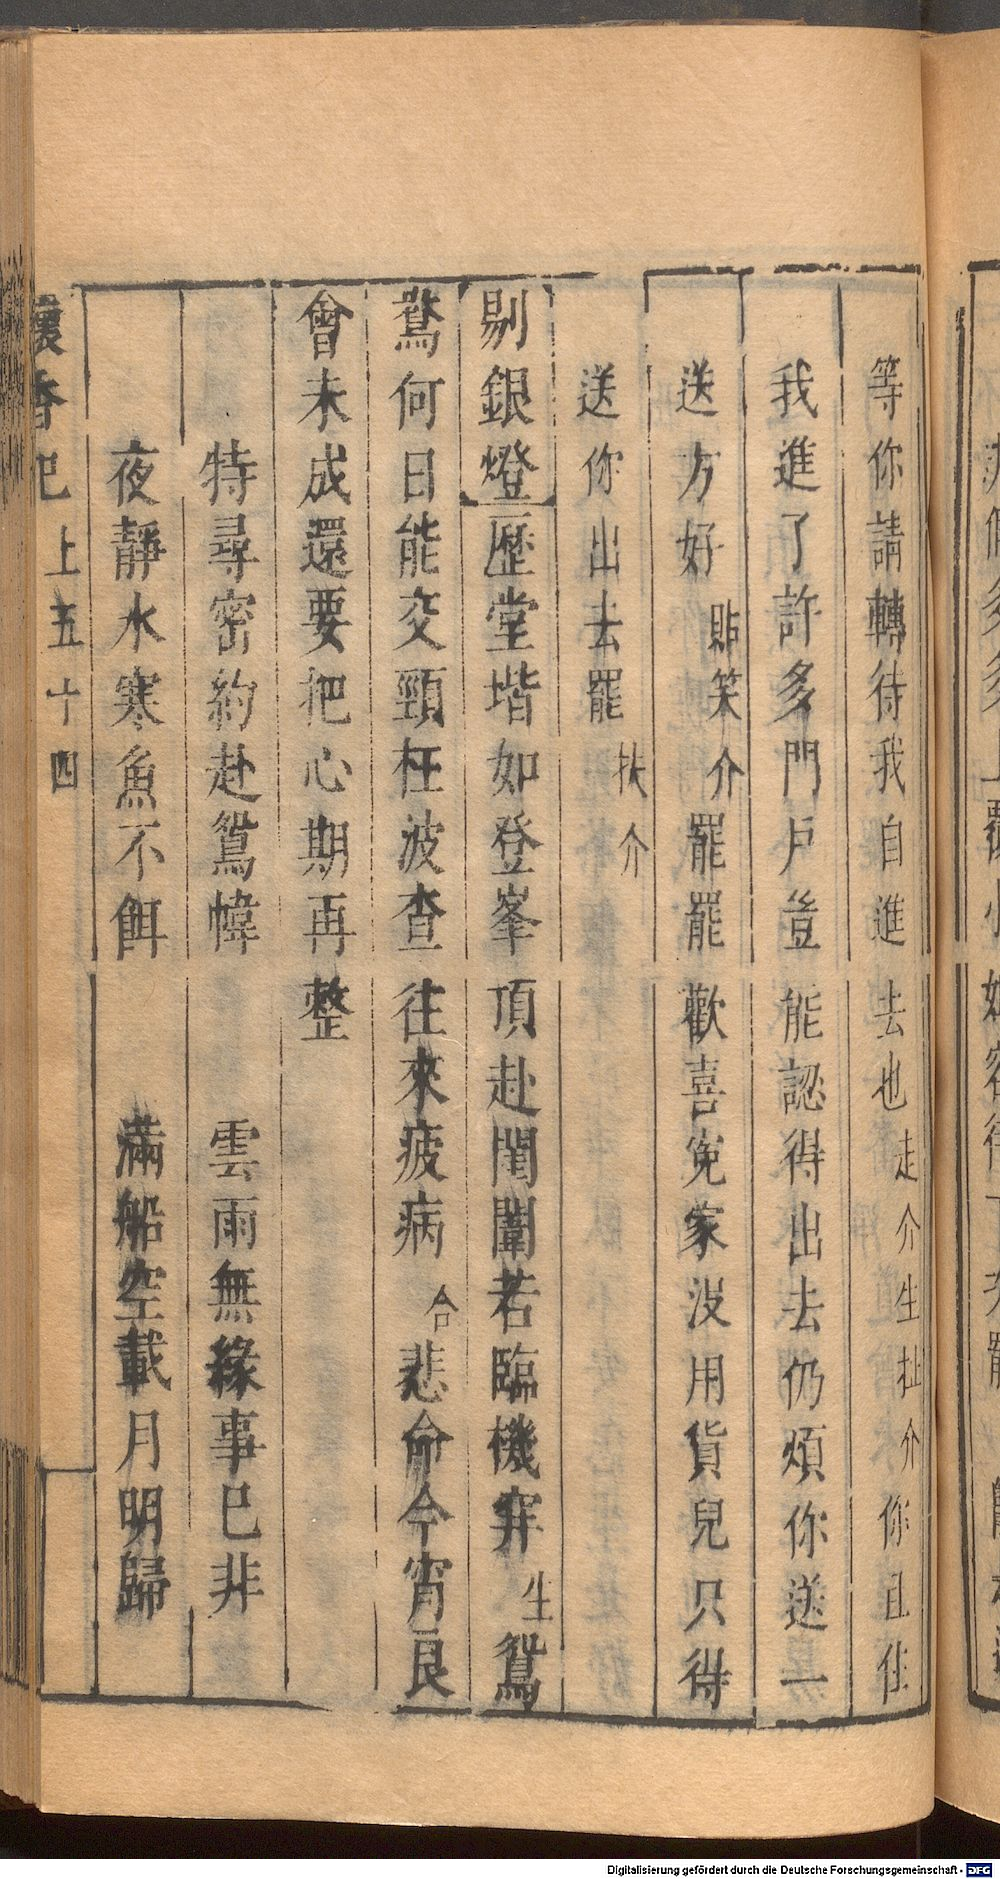 等你請轉待我自進去也走介生扯介你且住
我進了許多門戶豈能認得出去仍煩你送一
送方好貼笑介罷罷歡喜冤家沒用貨兒只得
送你出去罷扶介
剔銀燈歷堂堦如登峯頂赴閨闈若臨機穽生鴛
鴦何日能交頸枉波查往來疲病合悲命今宵良
會未成還要把心期再整
特尋密約赴鴛幃 雲雨無緣事已非
夜靜水寒魚不餌 滿船空載月明歸
懷香記 上五十四
Digitalisierung gefördert durch die Deutsche Forschungsgemeinschaft - DFG